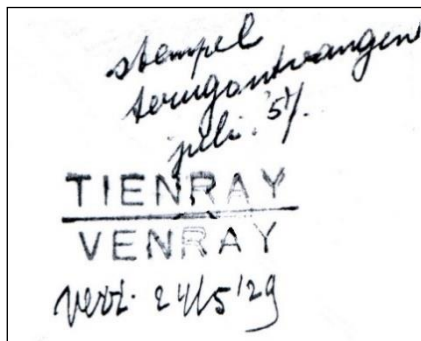 stempel
terugontvangen
juli '57.
TIENRAY
VENRAY
verz. 24/5 '29